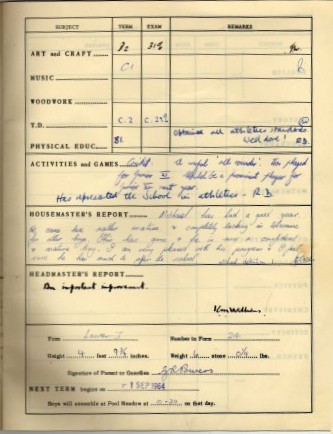 SUBJECT TERM EXAM REMARKS
ART and CRAFT B2 31%
MUSIC C1
WOODWORK
T.D. C.2 C.29%
PHYSICAL EDUC. B1 Obtained all athletics standards
Well done! R.B.
ACTIVITIES and GAMES Cricket. A useful 'all rounder'. Has played
for Junior XI. Should be a prominent player for
next year.
Has represented the School in athletics - R.B.
HOUSEMASTER'S REPORT Michael has had a good year.
He came here rather immature & completely lacking in tolerance
for other boys. This has gone & he is now a confident
& mature boy. I am very pleased with his progress & I feel
sure he has much to offer the school.
HEADMASTER'S REPORT
An important improvement.
Form Lower J Number in Form 24
Height 4 feet 9¾ inches. Weight 6 stone lbs.
Signature of Parent or Guardian
NEXT TERM begins on 1 SEP 1964
Boys will assemble at Pool Meadow at 10-30 on that day.